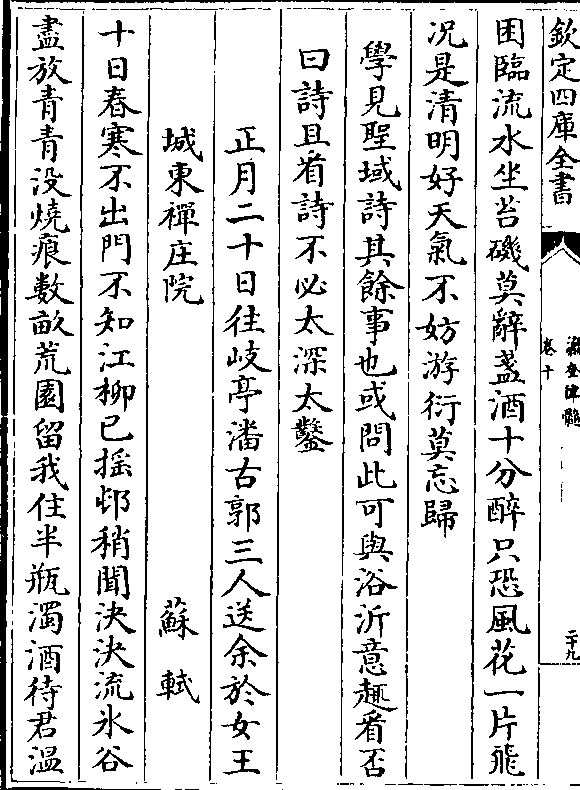 欽定四庫全書
瀛奎律髓
卷十
二十九
困臨流水坐苔磯莫辭盞酒十分醉只恐風花一片飛
况是清明好天氣不妨游衍莫忘歸
學見聖域詩其餘事也或問此可與浴沂意趣看否
曰詩且看詩不必太深太鑿
正月二十日往岐亭潘古郭三人送余於女王
城東禪庄院
蘇軾
十日春寒不出門不知江柳已揺邨稍聞决决流氷谷
盡放青青没燒痕數畝荒園留我住半瓶濁酒待君温